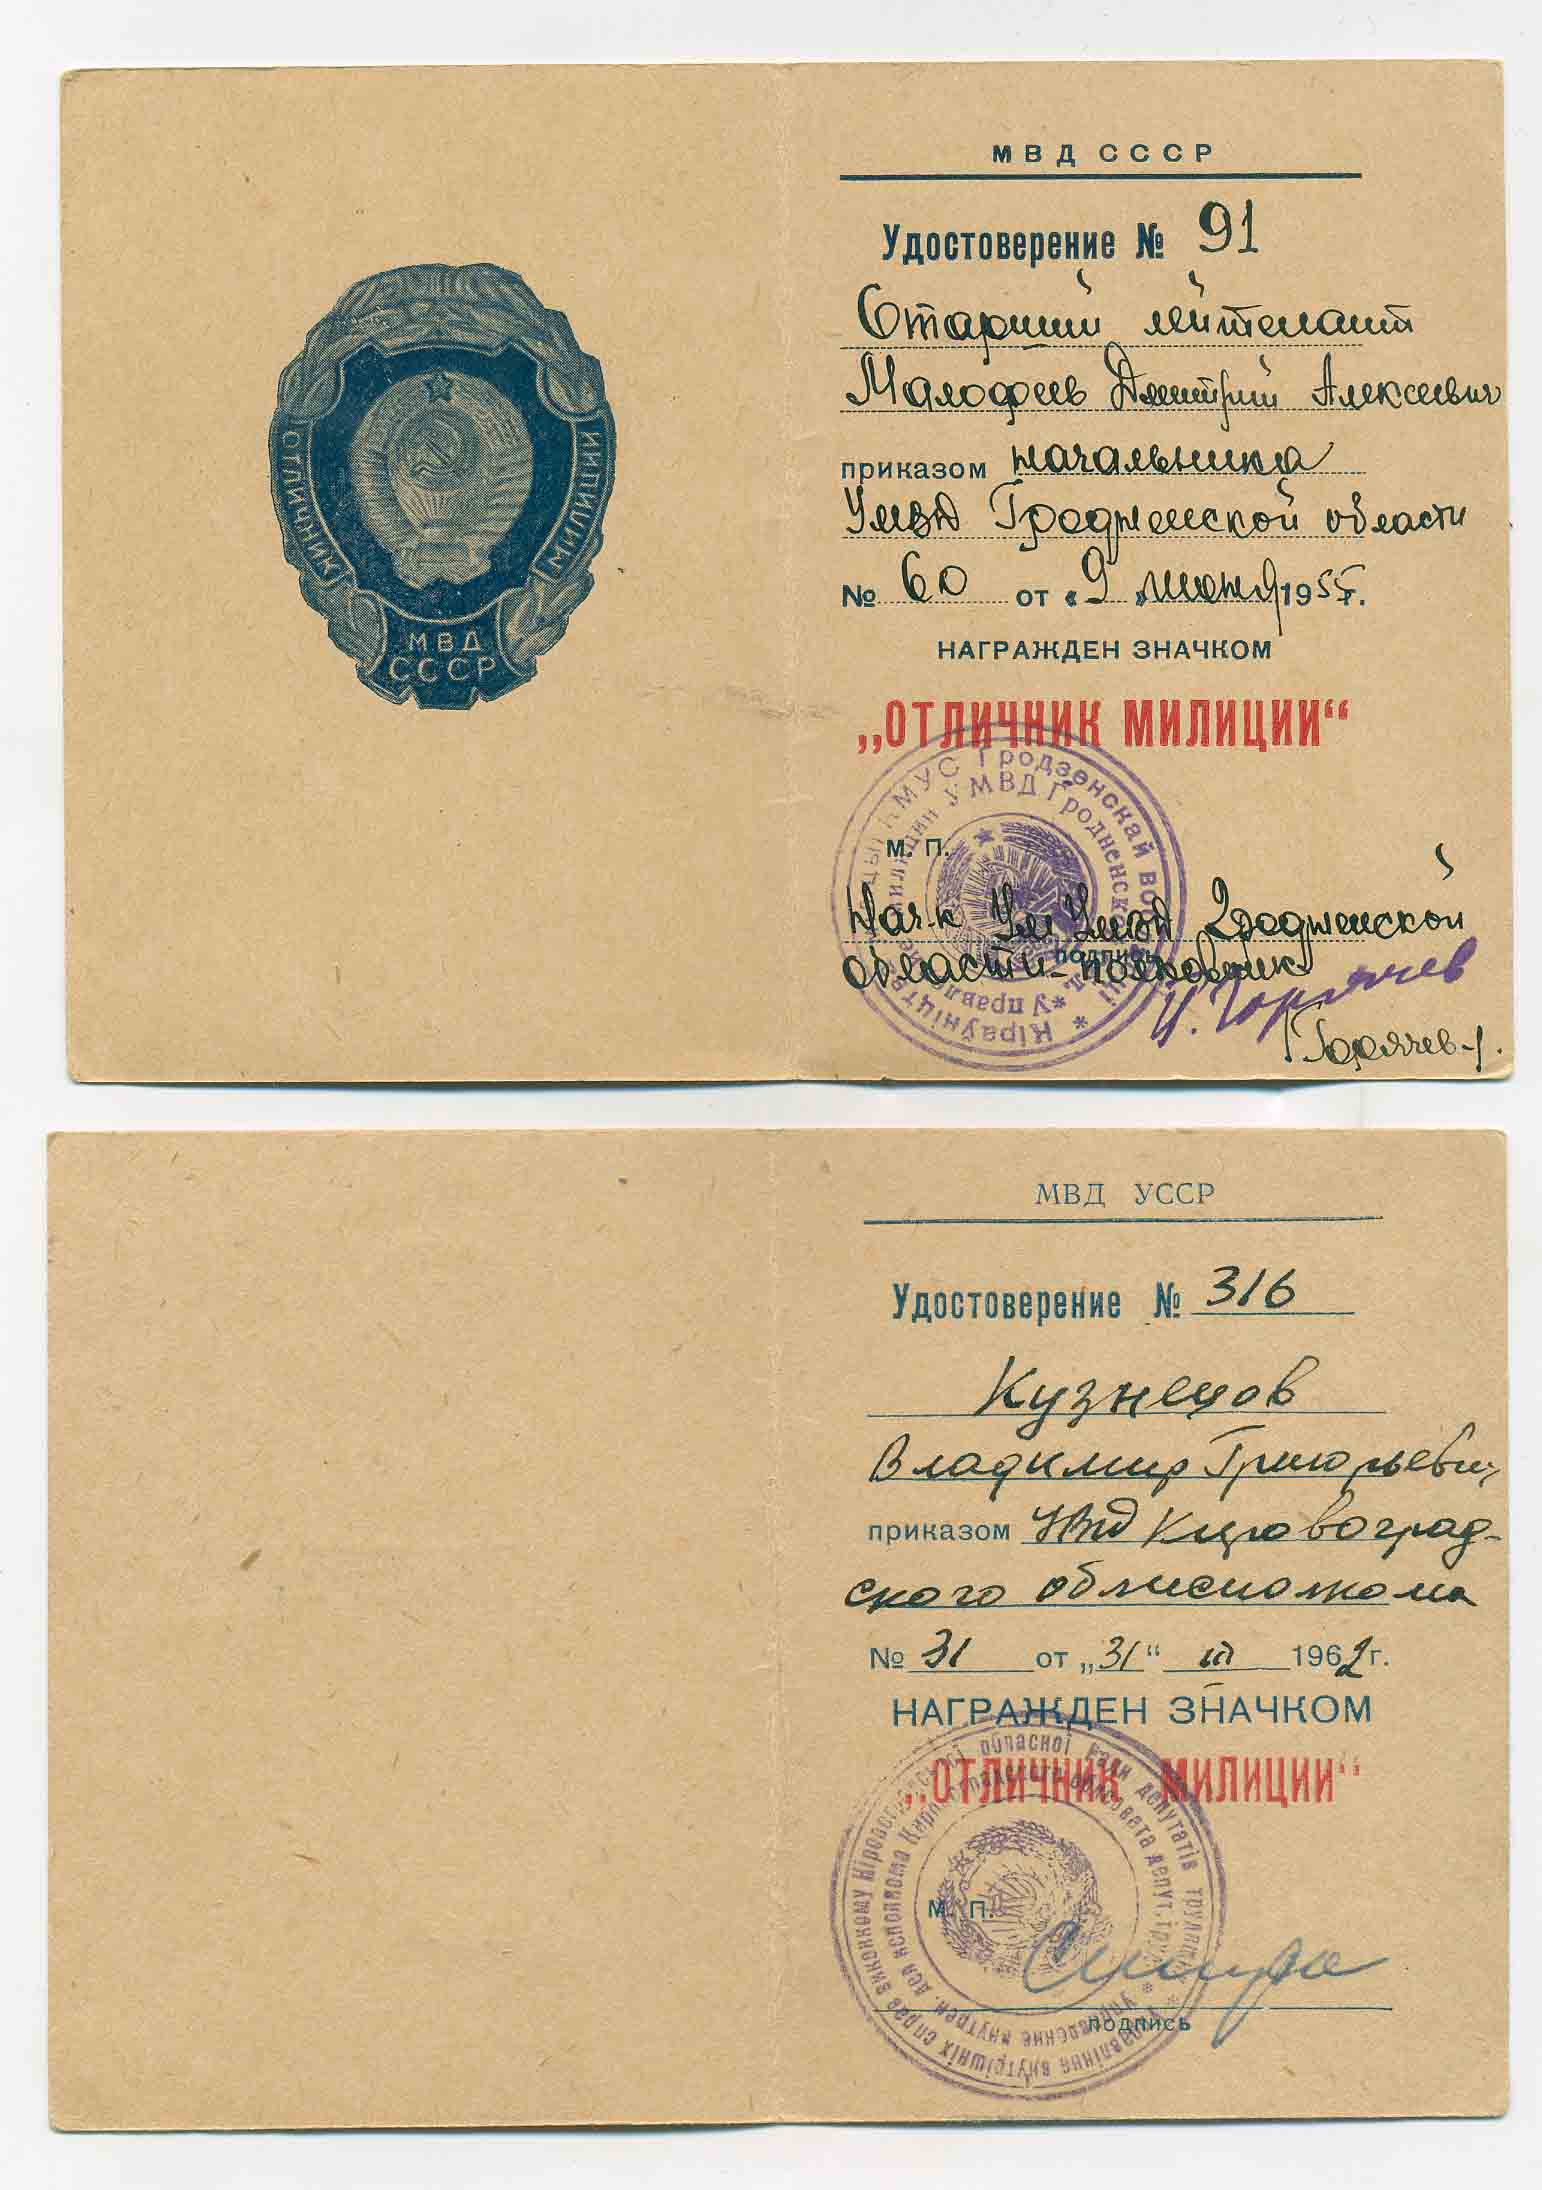 ОТЛИЧНИК
МИЛИЦИИ
МВД
СССР
МВД СССР
Удостоверение № 91
Старший лейтенант
Малофеев Дмитрий Алексеевич
приказом начальника
УМВД Гродненской области
№ 60 от «9» июня 1955 г.
НАГРАЖДЕН ЗНАЧКОМ
„ОТЛИЧНИК МИЛИЦИИ“
КМУС Гродзенскай
УМВД Гродненской
М. П.
Нач-к УМ УМВД Гродненской
подпись
области – полковник
И. Горячев
/Горячев/.
МВД УССР
Удостоверение № 316
Кузнецов
Владимир Григорьевич
приказом УВД Кировоград-
ского облисполкома
№ 31 от „31“ III 1962 г.
НАГРАЖДЕН ЗНАЧКОМ
„ОТЛИЧНИК МИЛИЦИИ“
Управління внутрішніх справ виконкому Кіровоградської обласної ради депутатів трудящих
Управление внутрен. дел исполкома Кировоградского облсовета депут. труд.
М. П.
подпись